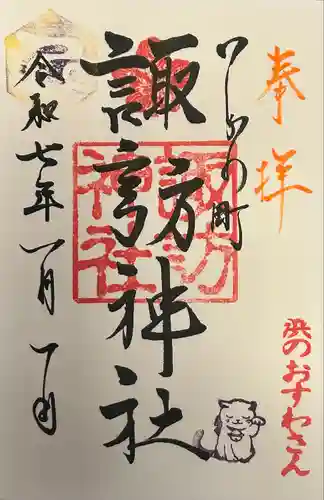 奉拝
の町
諏訪神社
諏訪
神社
令和七年一月一日
浜のおすわさん